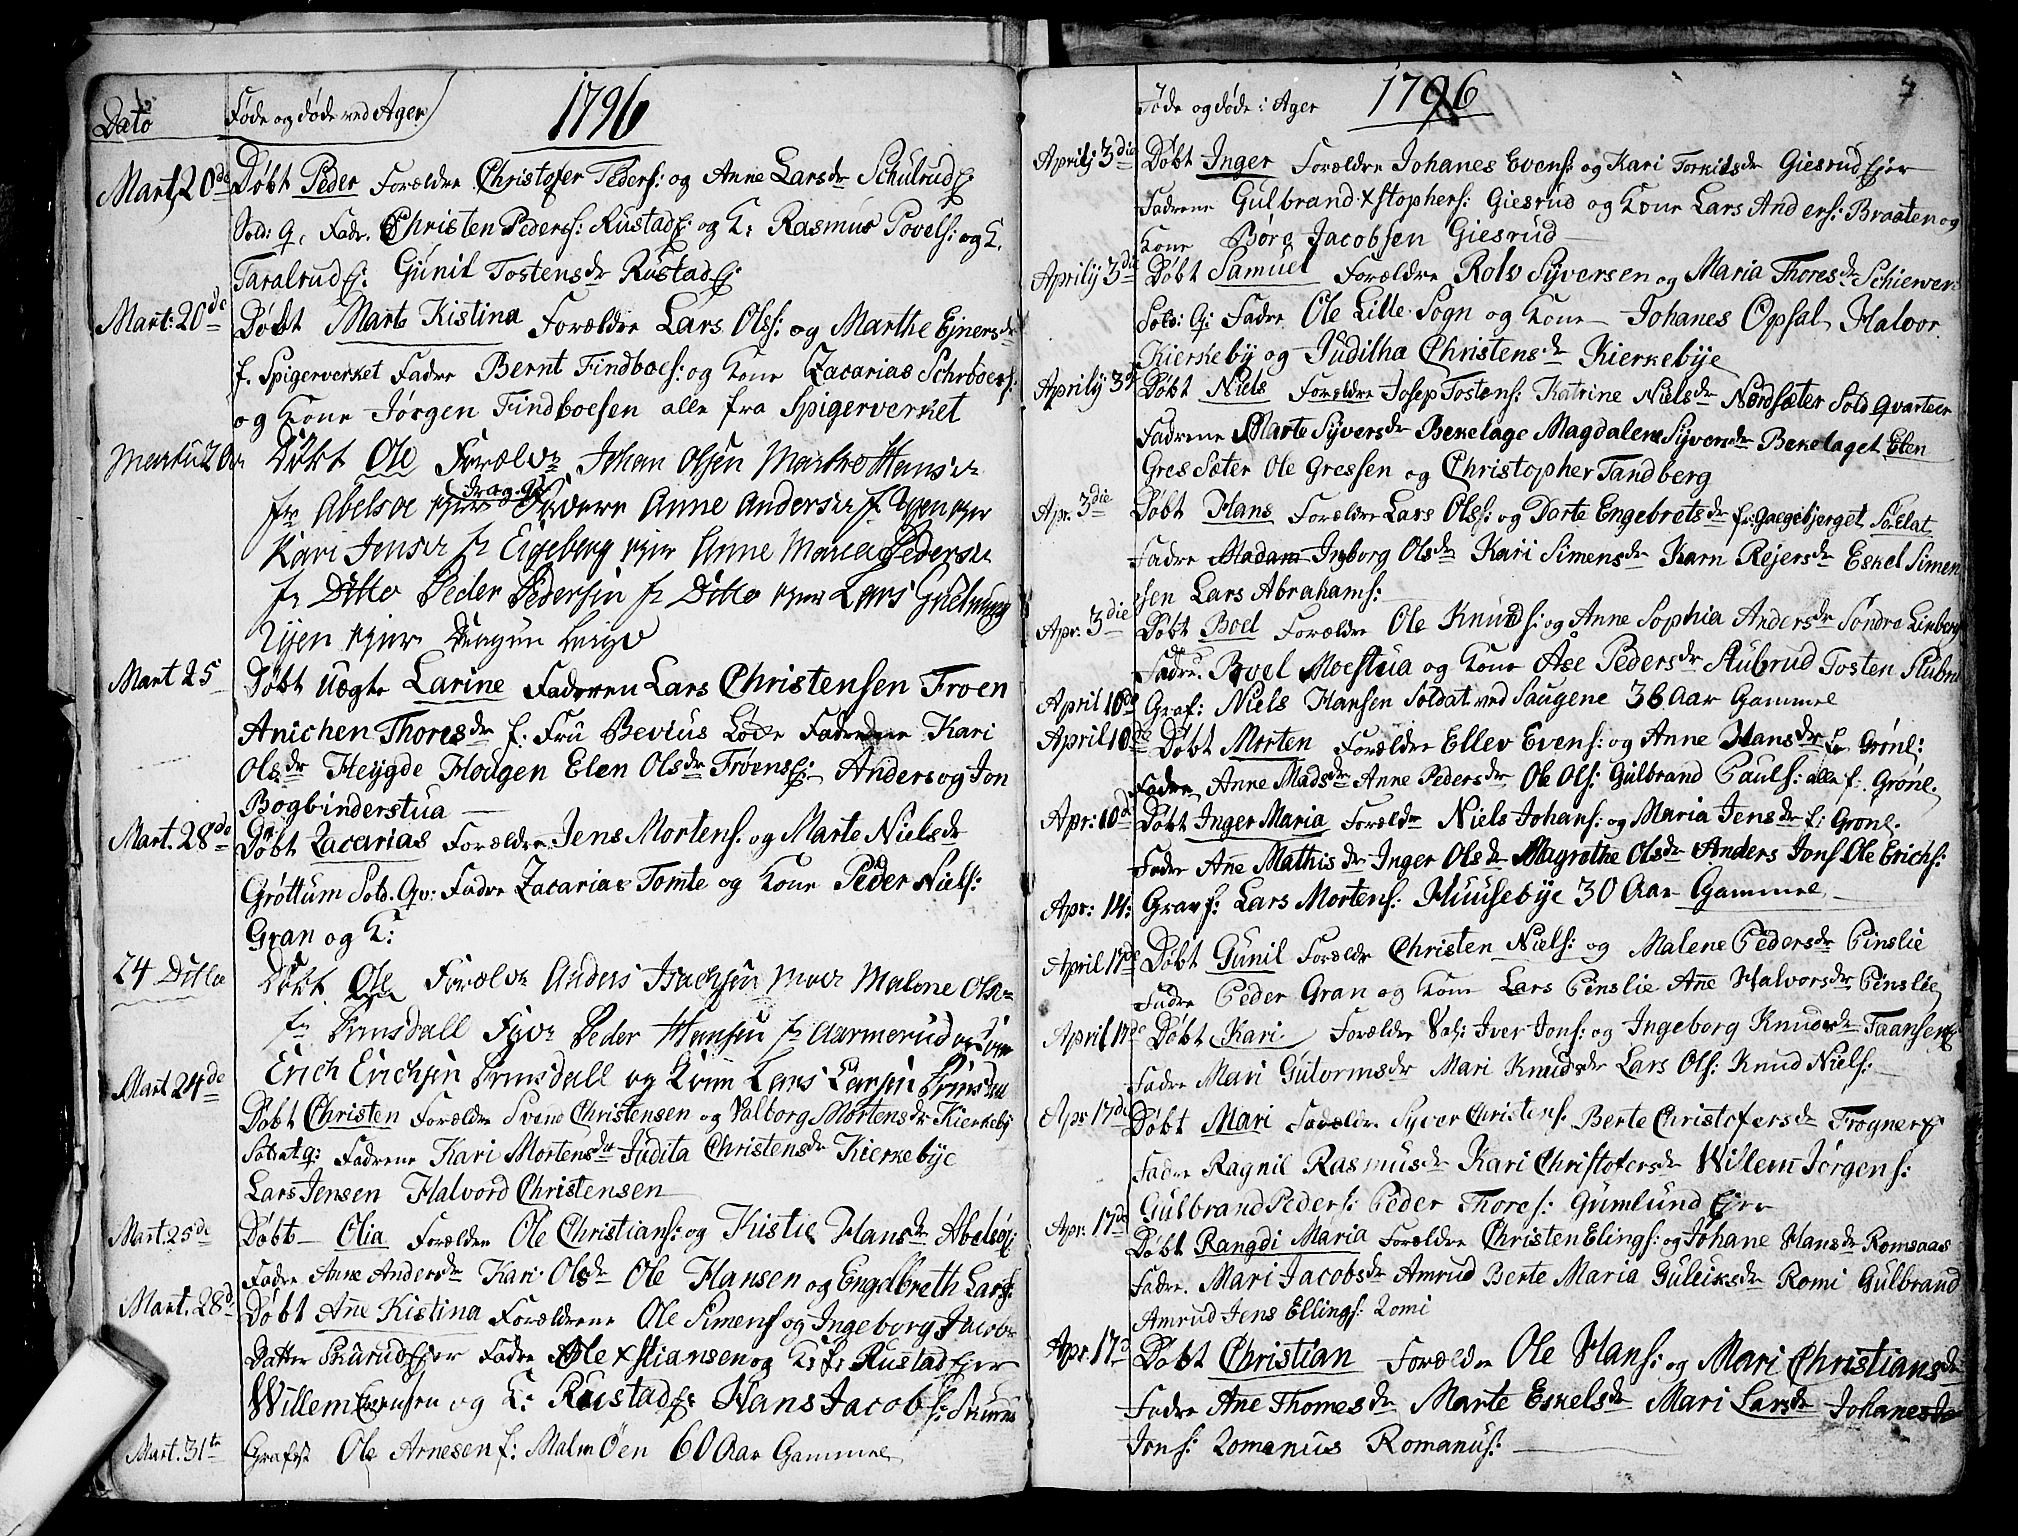 Dato
Føde og døde ved Ager
1796
Mart, 20de Døbt Peder Forældre Christofer Peders: og Anne Larsdr Schulrud Ej
Sold: q, Fadr. Christen Peders: Rustad Ej: og K: Rasmus Povels: og K.
Taralrud Ej: Gunil Tostensdr Rustad Ej:
Mart: 20de Døbt Marte Kistina Forældre Lars Ols: og Marthe Ejnersdr
f. Spigerverket Fadre Bernt Findboes: og Kone Zacarias Schrboers:
og Kone Jørgen Findboesen alle fra Spigerverket
Martii 20 Døbt Ole Forældr Johan Olsen Marthe Hansdr
fr Abelsøe Ejer Fadere Anne Andersdr f.
Kari Jensdr fr Eigeberg Ejer Anne Maria Pedersdr
fr Ditto Peder Pedersen fr Ditto Ejer Lars
Mart 25 Døbt Uægte Larine Faderen Lars Christensen Froen
Anichen Thoresdr f. Fru Bevius Løce Fadrene Kari
Olsdr Heygde Hougen Elen Olsdr Frøens Ej: Anders og Jon
Bogbinderstua
Mart. 28de Døbt Zacarias Forældre Jens Mortens: og Marte Nielsdr
Grøttum Sold. Qv: Fadre Zacarias Tomte og Kone Peder Niels:
Gran og K:
24 Ditto Døbt Ole Forældr Anders Isachsen Malene Olsdr
fr Brnsdall Peder Hansen fr Aarmerud og
Erich Erichsen Brnsdall og Lars Larsen
Mart 24de Døbt Christen Forældre Svend Christensen og Valborg Mortensdr Kierkeby
Soldat q: Fadrene Kari Mortensdr Judita Christensdr Kierkebye
Lars Jensen Halvord Christensen
Mart. 25de Døbt Olia Forældre Ole Christians: og Kistie Hansdr Abelsø:
Fadre Anne Andersdr Kari Olsdr Ole Hansen og Engelbreth Lars:
Mart. 28d Døbt Añe Kistina Forældrene Ole Simens og Ingeborg Jacobs
Datter Skurud Ejer Fadre Ole Xstiansen og K: f: Rustad Ejer
Willem Evensen og K: Rustad Ej: Hans Jacobs:
Mart. 31te Grafest Ole Arnesen f: Malmøen 60 Aar Gammel
7
Føde og døde i Ager
1796
Aprilij 3die Døbt Inger Forældre Johanes Evens: og Kari Torkildsdr Giesrud Ejer
Fadrene Gulbrand Xstophers: Giesrud og Kone Lars Anders: Braaten og
Kone Børe Jacobsen Giesrud
Aprilij 3die Døbt Samuel Forældre Rolv Syversen og Maria Thoresdr Schiewen
Sold: q: Fadre Ole Lille Sogn og Kone Johanes Opsal Halvor
Kierkeby og Juditha Christensdr Kierkebye
Aprilij 3de Døbt Niels Forældre Josep Tostens: Katrine Nielsdr Nordsæter Sold Qvarteer
Fadrene Marte Syversdr Bekelage Magdalene Syversdr Bekelaget Elen
Gres Sæter Ole Gressen og Christopher Tandberg
Apr. 3die Døbt Hans Forældre Lars Ols: og Dorte Engebretsdr fr: Galgebjerget Soldat
Fadre Madam Ingborg Olsdr Kari Simensdr Karn Rejersdr Eskel Simen
sen Lars Abrahams:
Apr: 3die Døbt Boel Forældre Ole Knuds: og Anne Sophia Andersdr Søndre Linberg
Fadre. Boel Moestua og Kone Åse Pedersdr Skubrud Tosten Skubru
April 10de Graf: Niels Hansen Soldat ved Saugene 36 Aar Gammel
April 10de Døbt Morten Forældre Ellev Evens: og Anne Hansdr fr Grønl:
Fadre Anne Madsdr Anne Pedersdr Ole Ols: Gulbrand Pauls: alle f. Grønl.
Apr: 10de Døbt Inger Maria Forældr Niels Johans: og Maria Jensdr f: Grønl.
Fadre Ane Mathisdr Inger Olsdr Magrethe Olsdr Anders Jons Ole Erichs:
Apr: 14: Gravf: Lars Mortens: Huusebye 30 Aar Gammel
April 17de Døbt Gunil Forældr Christen Niels: og Malene Pedersdr Pinslie
Fadre Peder Gran og Kone Lars Pinslie Añe Halvorsdr Pinslie
April 17de Døbt Kari Forældre Sol: Iver Jons: og Ingeborg Knudsdr Taansen Ej
Fadre Mari Gulormsdr Mari Knudsdr Lars Ols: Knud Niels:
Apr 17de Døbt Mari Forældre Syver Christens: Berte Christofersdr Trogner Ej
Fadre Ragnil Rasmusdr Kari Christofersdr Willem Jørgens:
Gulbrand Peders: Peder Thores: Gumlund Ejer
Apr: 17de Døbt Rangdi Maria Forældre Christen Elings: og Johane Hansdr Romsaas
Fadre. Mari Jacobsdr Amrud Berte Maria Guleiksdr Romi Gulbrand
Amrud Jens Ellings: Romi
Apr: 17d Døbt Christian Forældre Ole Hans: og Mari Christiansdr
Fadre Ane Thomesdr Marte Eskelsdr Mari Larsdr Johanes
Jons: Romanus Romanus: